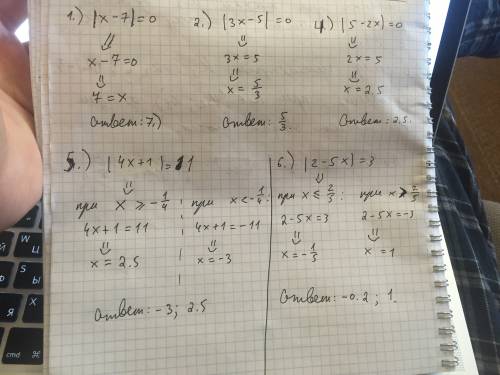 1.) |x-7|=0
x-7=0
7=x
Ответ: 7.)
2.) |3x-5|=0
3x=5
x=5/3
Ответ: 5/3.
4.) |5-2x|=0
2x=5
x=2,5
Ответ: 2,5.
5.) |4x+1|=11
при x ≥ -1/4
4x+1=11
x=2.5
при x<-1/4:
4x+1=-11
x=-3
Ответ: -3; 2.5
6.) |2-5x|=3
при x ≤ 2/5:
2-5x=3
x=-1/5
при x > 2/5
2-5x=-3
x=1
Ответ: -0.2; 1.
cmd
⌘